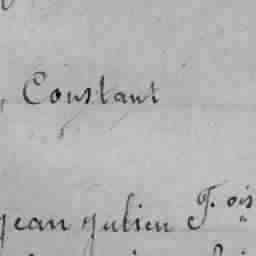 Constant
jean julien F. ois